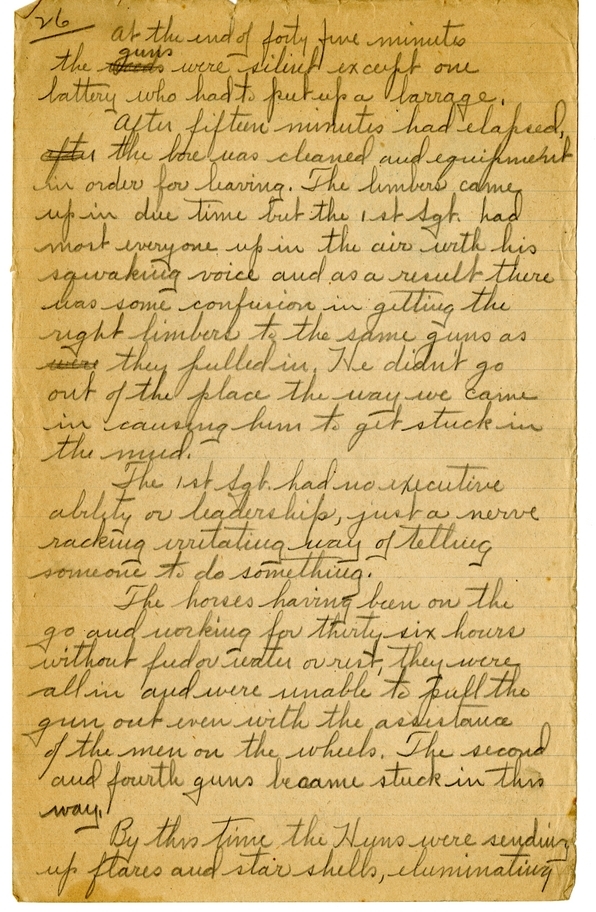 26
At the end of forty five minutes
guns
the were silent except one
battery who had to put up a barrage.
After fifteen minutes had elapsed,
after the bore was cleaned and equipment
in order for leaving. The limbers came
up in due time but the 1st Sgt. had
most everyone up in the air with his
sqwaking voice and as a result there
was some confusion in getting the
right limbers to the same guns as
were they pulled in. He didn't go
out of the place the way we came
in causing him to get stuck in
the mud.
The 1st Sgt. had no executive
ability or leadership, just a nerve
racking irritating way of telling
someone to do something.
The horses having been on the
go and working for thirty six hours
without feed or water or rest, they were
all in and were unable to pull the
gun out even with the assistance
of the men on the wheels. The second
and fourth guns became stuck in this
way.
By this time the Huns were sending
up flares and star shells, eluminating